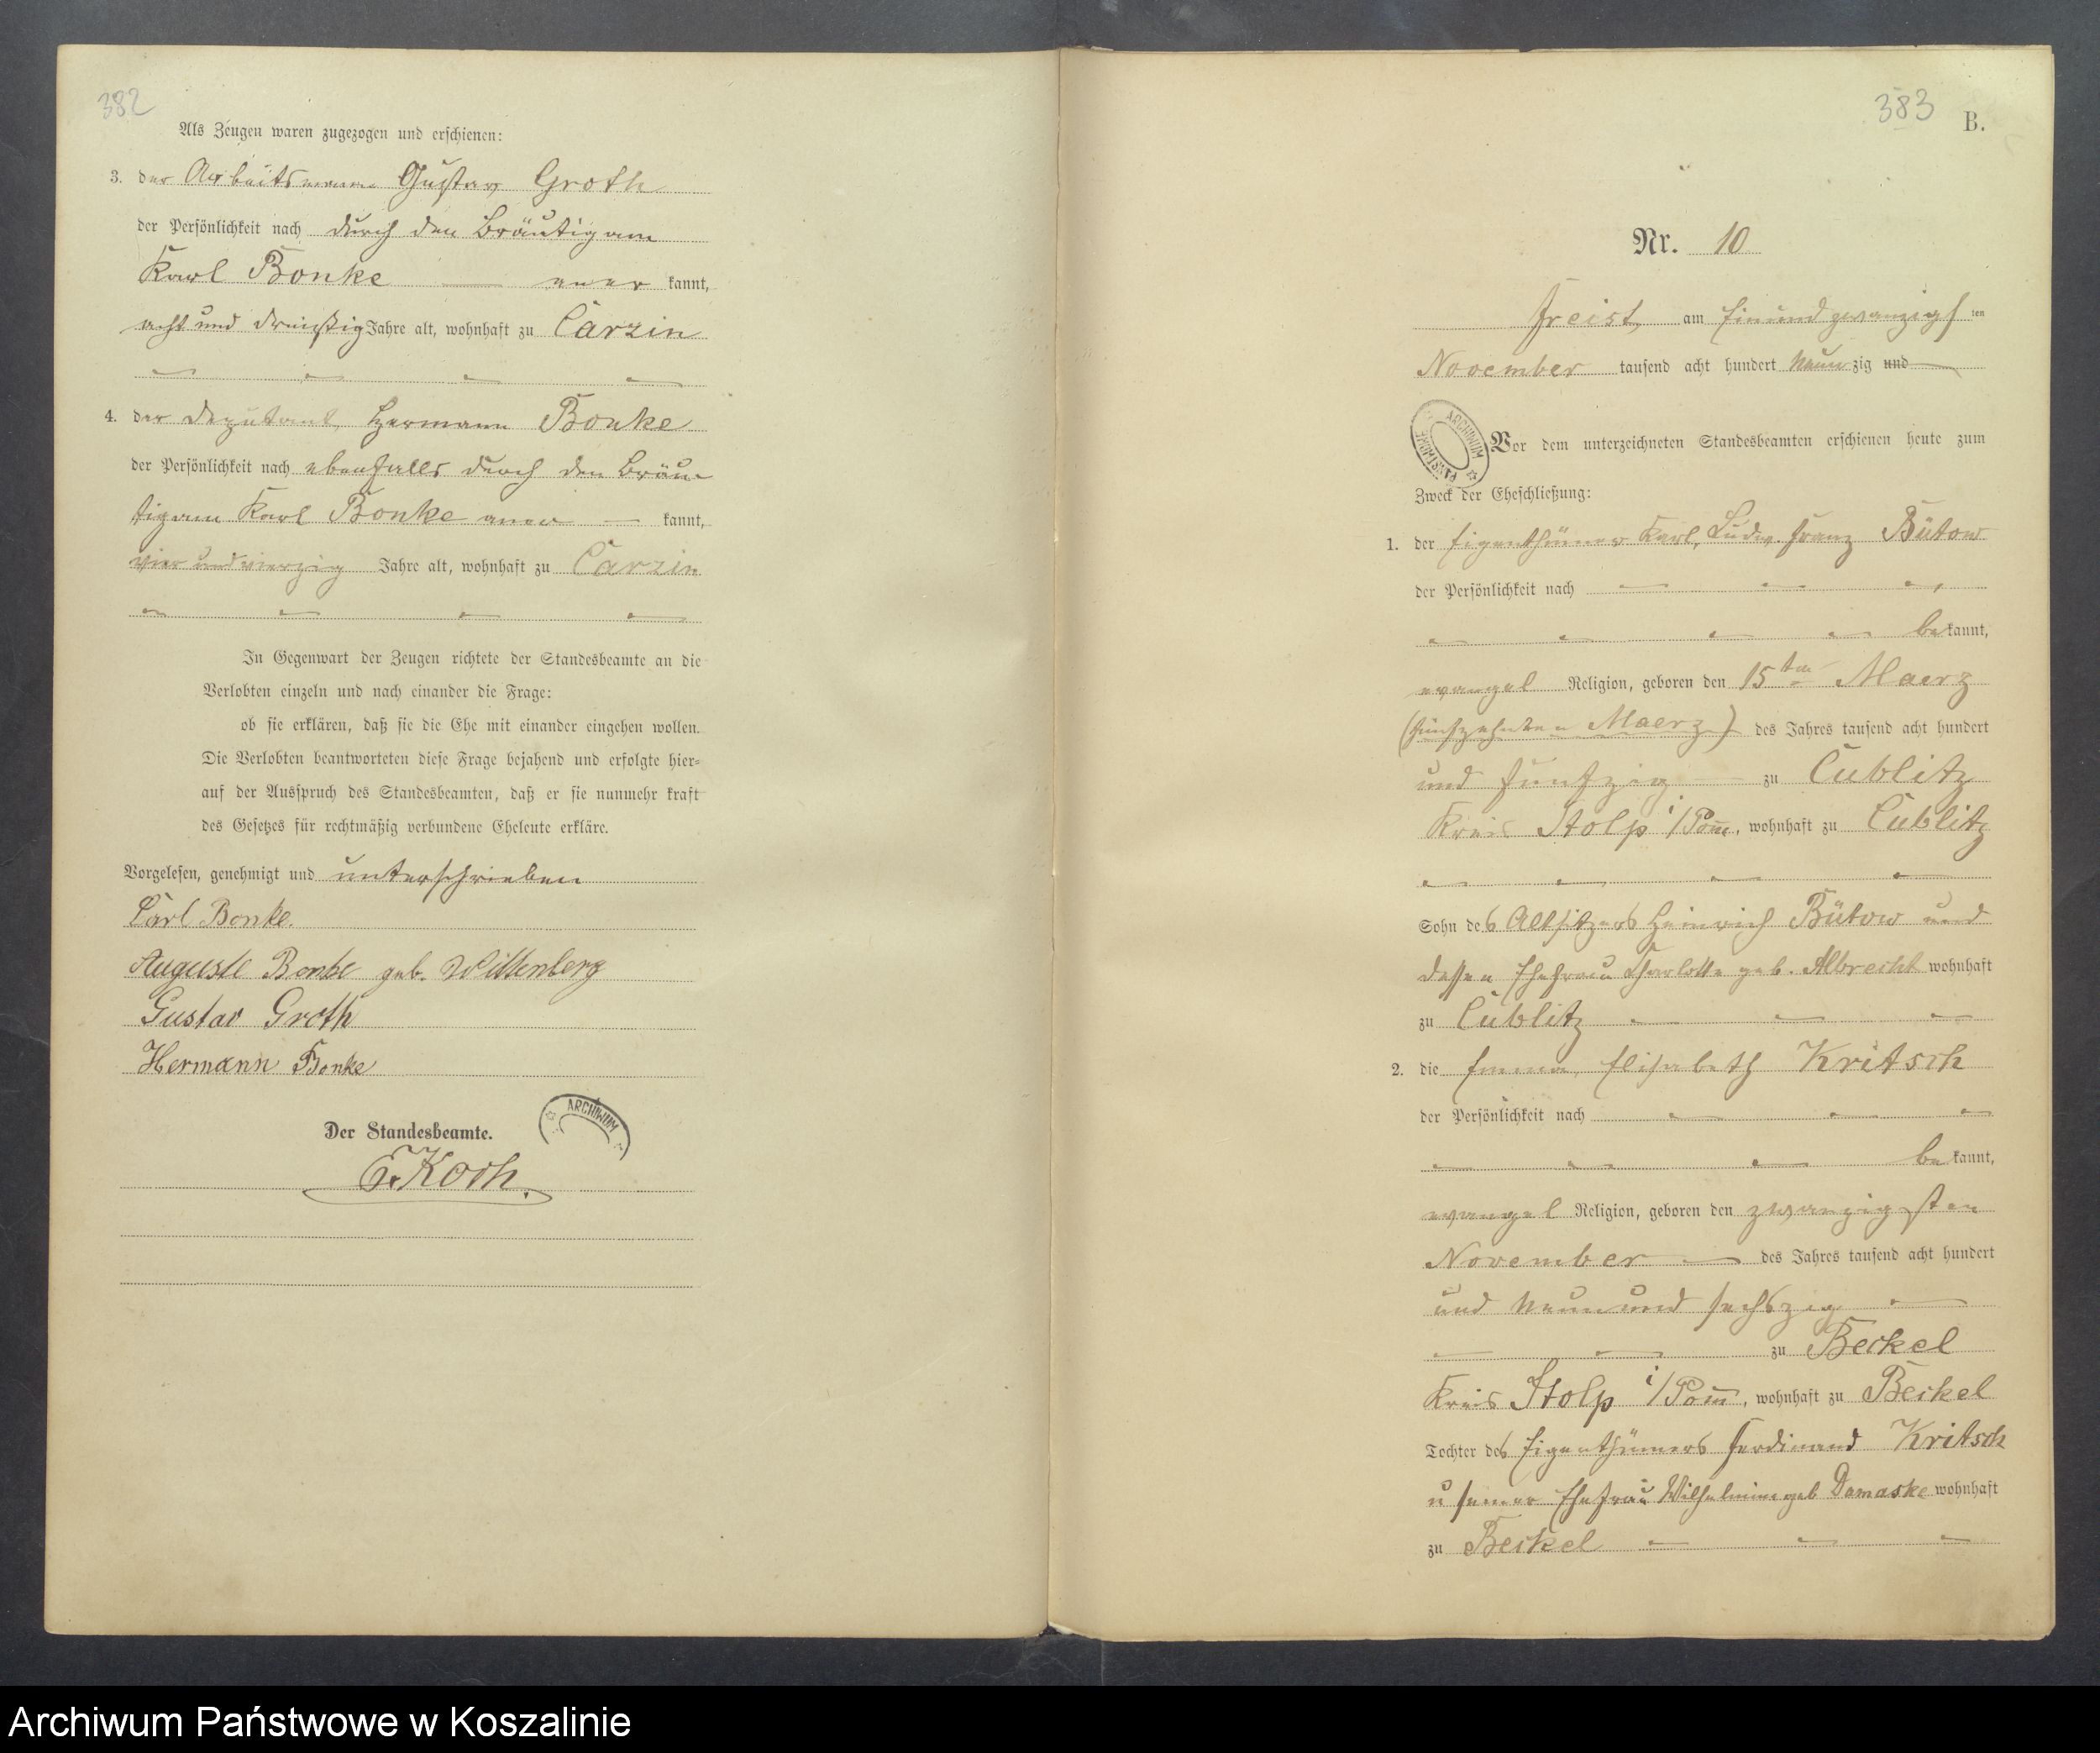 382
Als Zeugen waren zugezogen und erschienen:
3. der Arbeitsmann Gustav Groth
der Persönlichkeit nach durch den Bräutigam
Karl Bonke — aner kannt,
acht und dreißig Jahre alt, wohnhaft zu Carzin
4. der Deputant Hermann Bonke
der Persönlichkeit nach ebenfalls durch den Bräu
tigam Karl Bonke aner — kannt,
vier und vierzig Jahre alt, wohnhaft zu Carzin
In Gegenwart der Zeugen richtete der Standesbeamte an die
Verlobten einzeln und nach einander die Frage:
ob sie erklären, daß sie die Ehe mit einander eingehen wollen.
Die Verlobten beantworteten diese Frage bejahend und erfolgte hier-
auf der Ausspruch des Standesbeamten, daß er sie nunmehr kraft
des Gesetzes für rechtmäßig verbundene Eheleute erkläre.
Vorgelesen, genehmigt und unterschrieben
Carl Bonke.
Auguste Bonke geb. Wittenberg
Gustav Groth
Hermann Bonke
ARCHIWUM
Der Standesbeamte.
E. Koch.
383
B.
Nr. 10
Freist, am einundzwanzigsten
November tausend acht hundert neunzig und —
ARCHIWUM PAŃSTWOWE
Vor dem unterzeichneten Standesbeamten erschienen heute zum
Zweck der Eheschließung:
1. der Eigenthümer Karl, Ludw. Franz Bütow
der Persönlichkeit nach
be kannt,
evangel Religion, geboren den 15ten Maerz
(fünfzehnten Maerz) des Jahres tausend acht hundert
und fünfzig — zu Cublitz
Kreis Stolp i/Pom̅, wohnhaft zu Cublitz
Sohn des Altsitzers Heinrich Bütow und
dessen Ehefrau Charlotte geb. Albrecht wohnhaft
zu Cublitz
2. die Emma, Elisabeth Kritsch
der Persönlichkeit nach
be kannt,
evangel Religion, geboren den zwanzigsten
November — des Jahres tausend acht hundert
und neunund sechszig —
zu Beckel
Kreis Stolp i/Pom̅, wohnhaft zu Beckel
Tochter des Eigenthümers Ferdinand Kritsch
u seiner Ehefrau Wilhelmine geb Damaske wohnhaft
zu Beckel
Archiwum Państwowe w Koszalinie